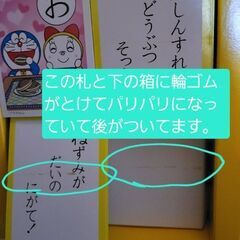 お
しんすれ
どうぶつ
そっ
この札と下の箱に輪ゴム
がとけてパリパリになっ
ていて後がついてます。
ねずみが
だいの
にがて!